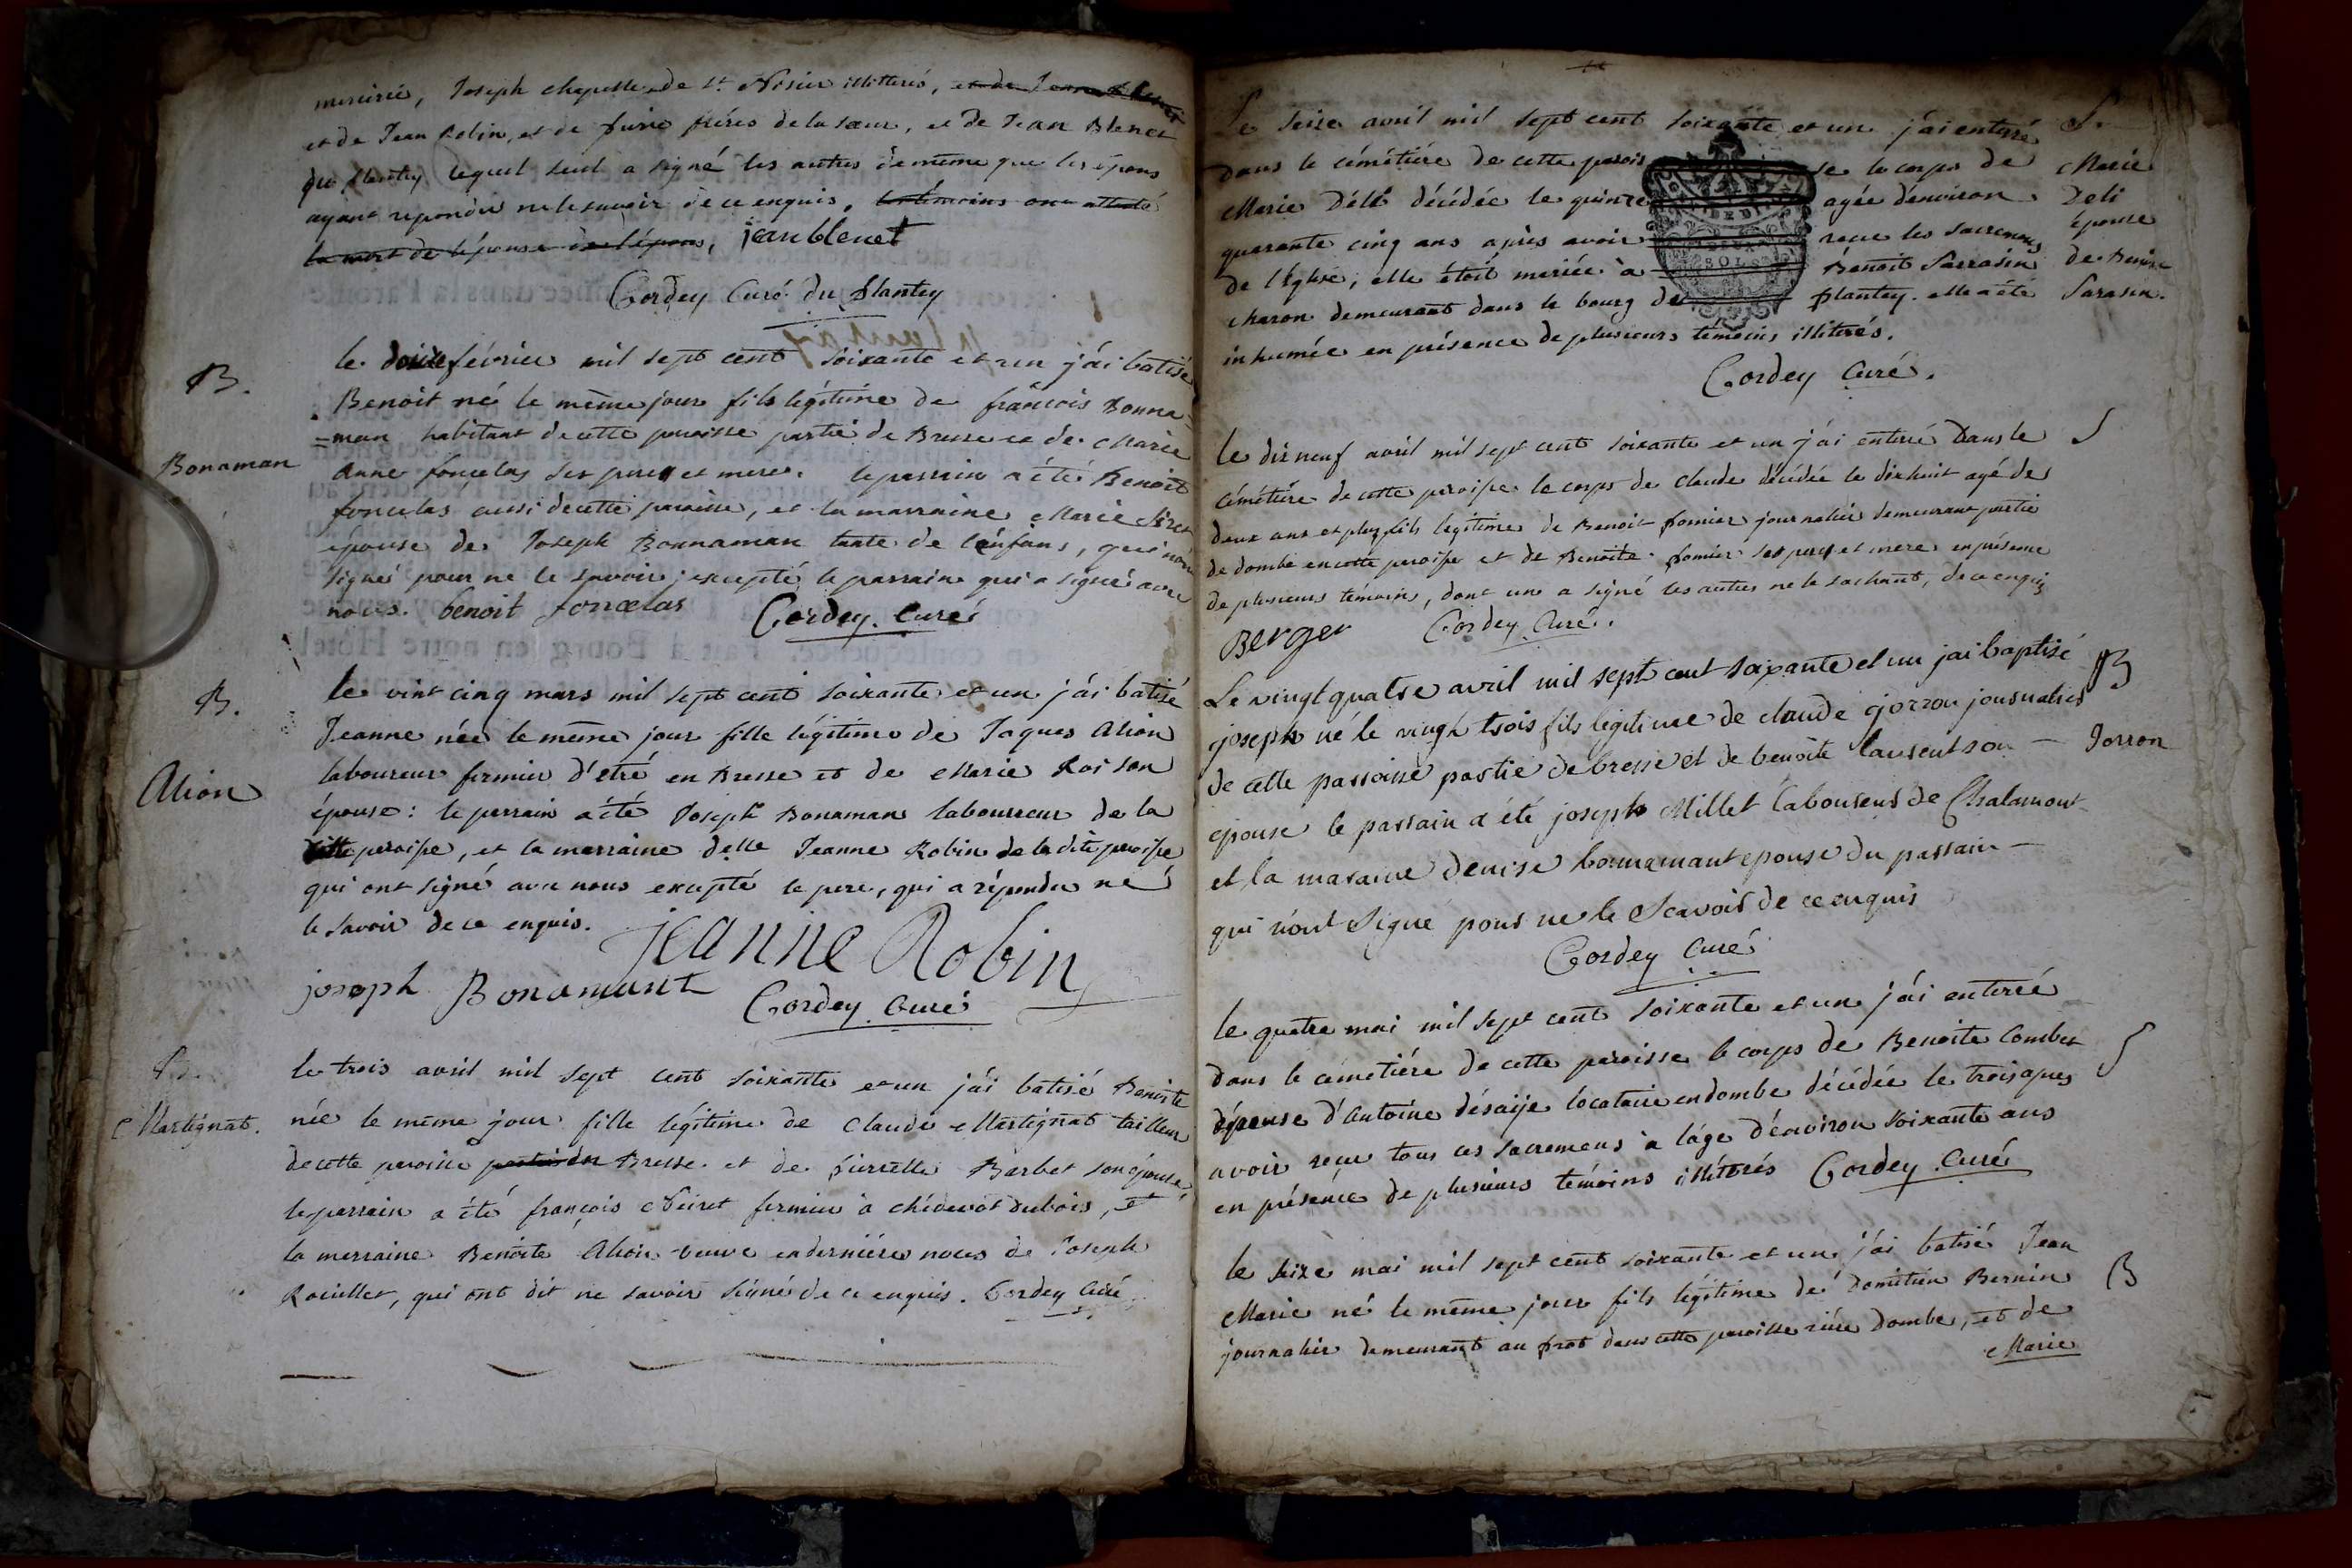 Joseph chapelle de St. Nisier illitterés,
et de Jean Robin, et de frères de la sœur, et de Jean Blenet
du plantey lequel seul a signé les autres de même que les épous
ayant repondu ne le savoir de ce enquis, les témoins ont attesté
la mort de l'épouse de l'épous, jean blenet
Cordey Curé du plantey
le douze février mil sept cent soixante et un j'ai batisé
B.
Benoit né le même jour fils légitime de françois Bonna-
=man habitant de cette paroisse partie de Bresse et de Marie
Bonaman
anne foncelas ses pere et mere. le parrain a été Benoit
foncelas aussi de cette paroisse, et la marraine Marie
épouse de Joseph Bonnaman tante de l'enfans, qui n'ont
signé pour ne le savoir; excepté le parrain qui a signé avec
nous. benoit foncelas Cordey. Curé
le vint cinq mars mil sept cent soixante et un j'ai batisé
B.
Jeanne née le même jour fille légitime de Jaques Alion
laboureur fermier d'etré en Bresse et de Marie Roi son
Alion
épouse: le parrain a été Joseph Bonaman laboureur de la
ditte paroisse, et la marraine delle Jeanne Robin de la dite paroisse
qui ont signé avec nous excepté le pere, qui a répondu ne
le savoir de ce enquis.
jeanne Robin
joseph Bonamant
Cordey. Curé
le trois avril mil sept cent soixante et un j'ai batisé Benoite
B.
née le même jour fille légitime de Claude Martignat tailleur
Martignat.
de cette paroisse partie de Bresse. et de pierrette Barbet son épouse,
le parrain a été françois Neiret fermier à du bois, et
la marraine Benoite Alion veuve en derniére noces de Joseph
Rouillet, qui ont dit ne savoir signé de ce enquis. Cordey Curé
Le seize avril mil sept cent soixante et un j'ai enterré
S.
dans le cémétiére de cette parois se le corps de
Marie Déli décédée le quinze agée d'environ
quarante cinq ans après avoir recu les sacremens
de l'Eglise; elle étoit mariée à Benoit Sarrasin
charon demeurant dans le bourg de plantey. elle a été
inhumée en présence de plusieurs témoins illiterés.
Marie
Deli
épouse
de Benoit
Sarasin.
SOLS
Cordey Curé.
le dix neuf avril mil sept cent soixante et un j'ai enterré dans le
S
cémétiére de cette paroisse le corps de Claude décédée le dixhuit agé de
deux ans et plus fils légitime de Benoit pomier journalier demeurant partie
de dombe en cette paroisse et de Benoite pomier ses pere et mere en présence
de plusieurs témoins, dont un a signé les autres ne le sachant, de ce enquis
Berger Cordey. Curé.
Le vingt quatre avril mil sept cent soixante et un jai baptisé
B
joseph né le vingt trois fils legitime de claude jorron journalier
de cette parroisse partie de bresse et de benoite laurent son —
Jorron
epouse le parrain a été joseph Millet laboureur de Chalamont
et la maraine denise bonnamant epouse du parrain —
qui n'ont Signé pour ne le Scavoir de ce enquis
Cordey Curé
le quatre mai mil sept cent soixante et un j'ai enterrée
dans le cémetiére de cette paroisse le corps de Benoite Combet
S
épouse d'Antoine désaije locataire en dombe décédée le trois apres
avoir recu tous ces sacremens à l'áge d'environ soixante ans
en présence de plusieurs témoins illitérés Cordey. Curé
le seize mai mil sept cent soixante et un j'ai batisé Jean
B
Marie né le même jour fils légitime de domitien Bernin
journalier demeurant au prot dans cette paroisse riére Dombe, et de
Marie